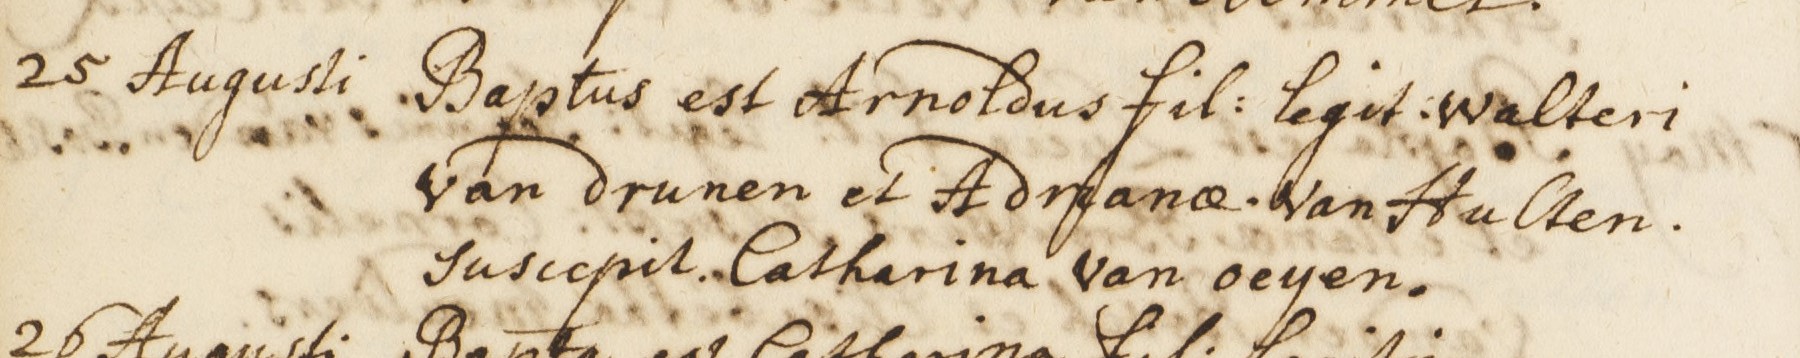 25 Augusti Baptus est Arnoldus fil: legit: walteri
van drunen et Adrianæ. van Hulten.
suscepit. Catharina van oeyen.
26 Augusti Bapta est Catharina fil: legit: